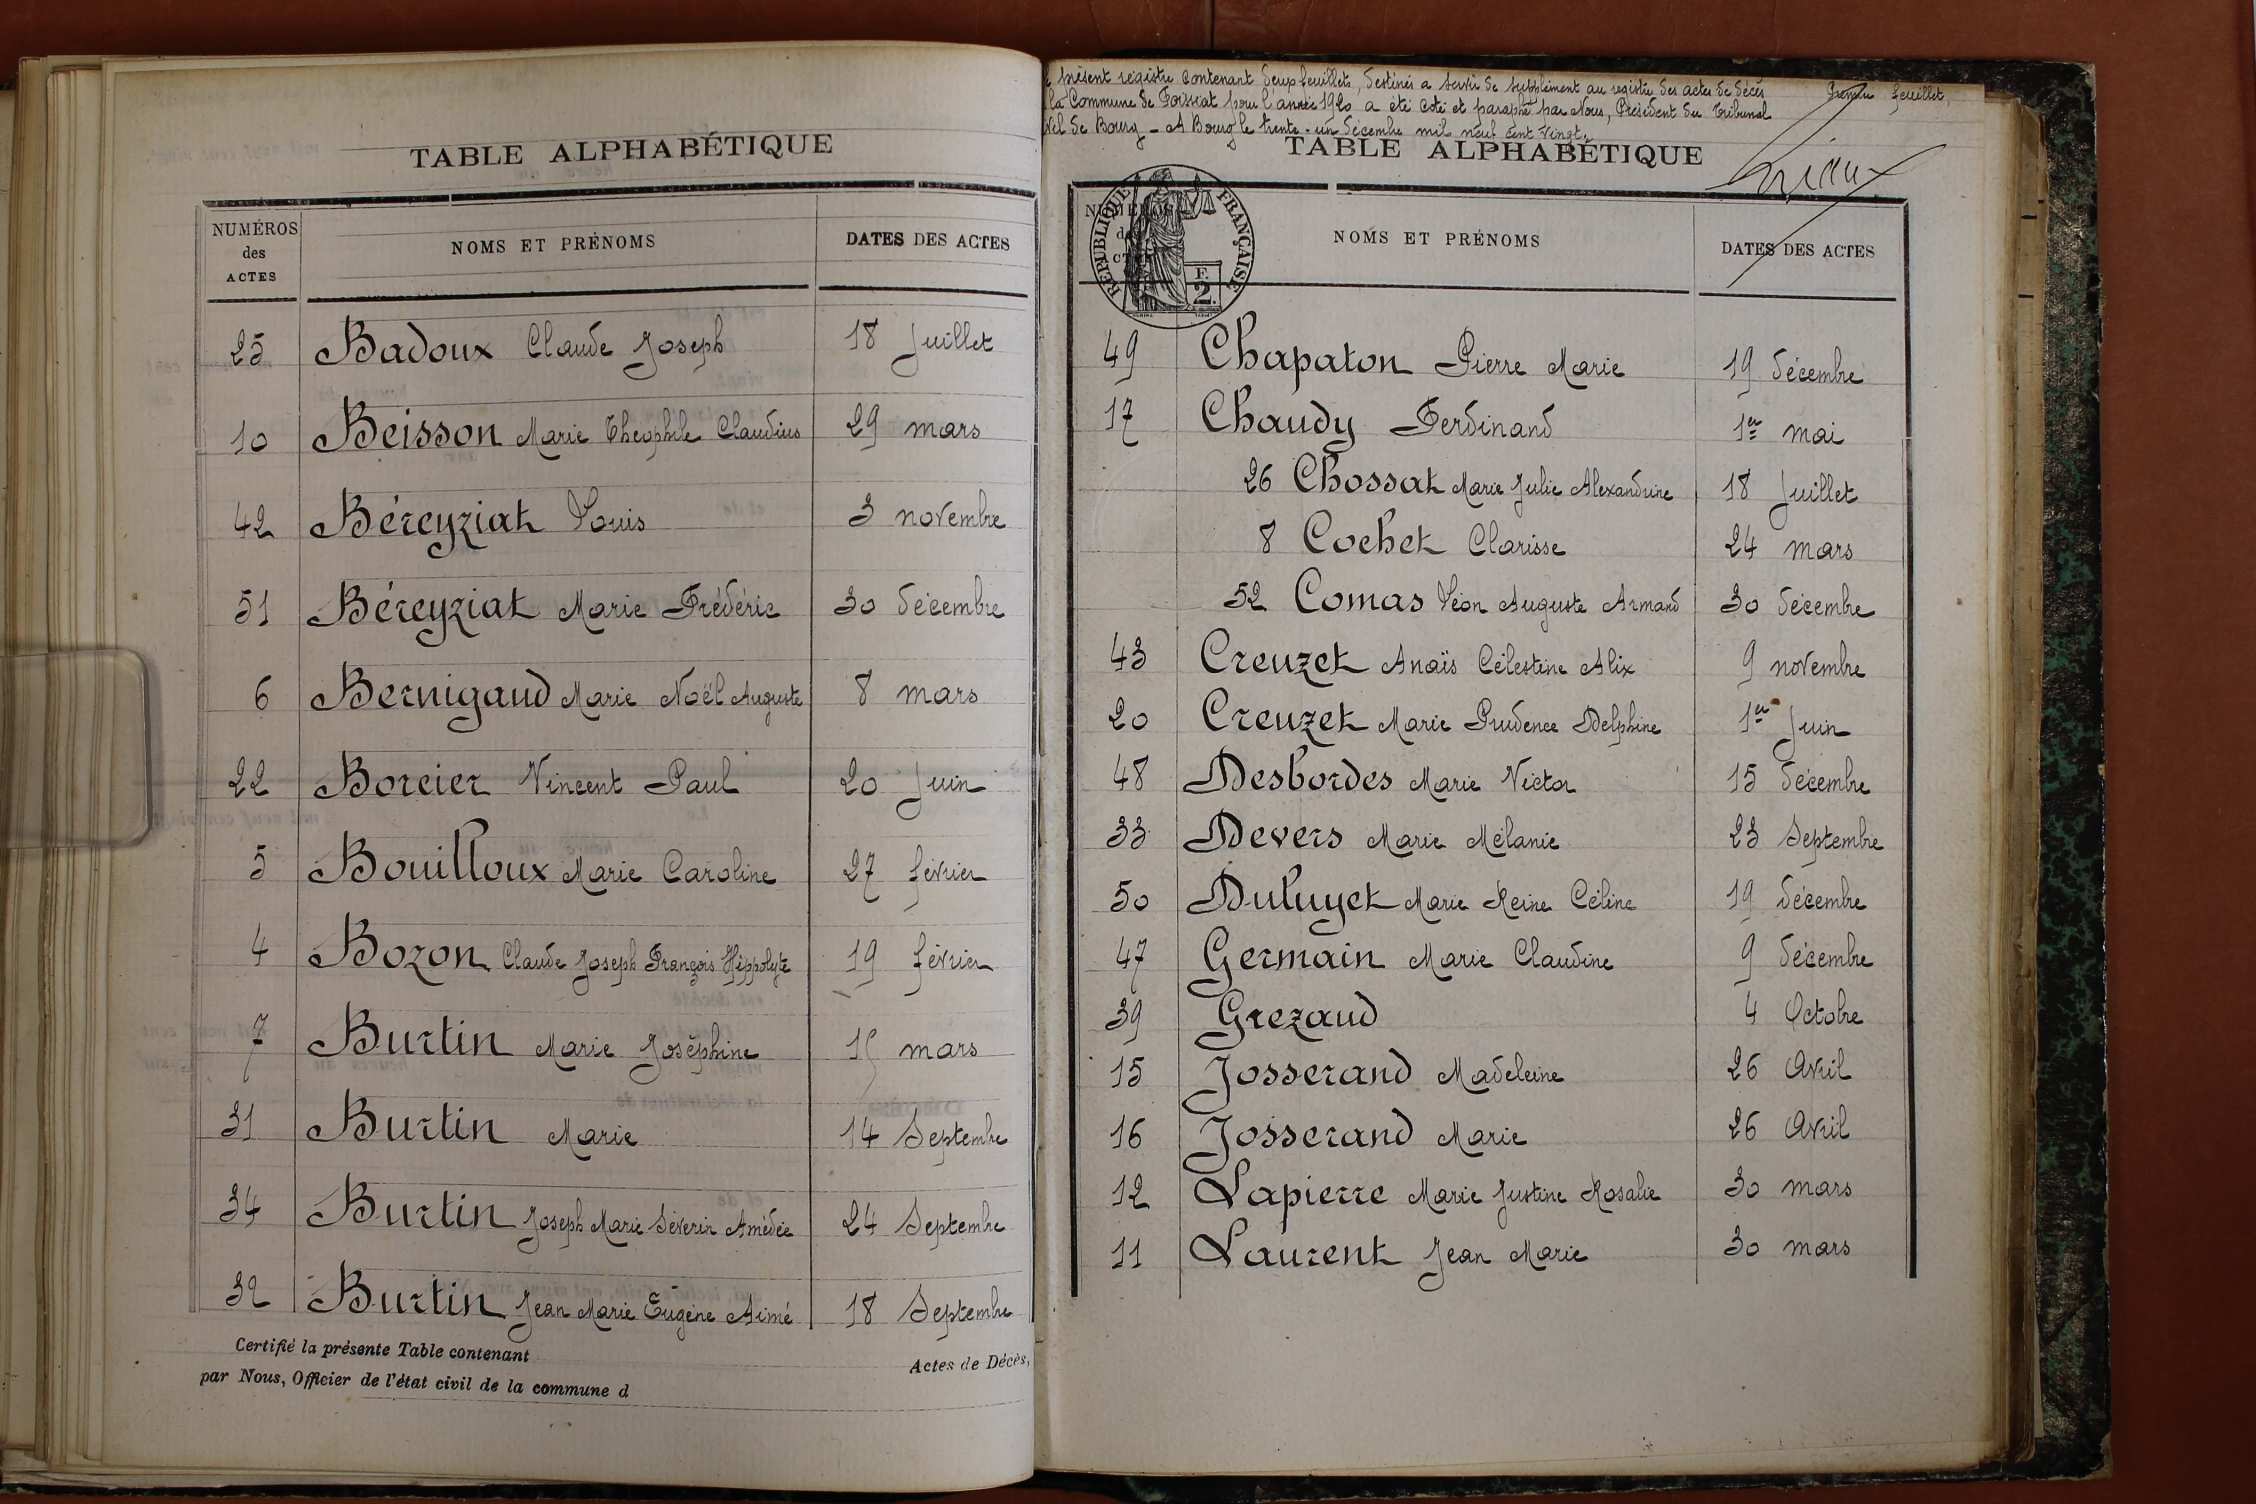 TABLE ALPHABÉTIQUE
NUMÉROS des ACTES NOMS ET PRÉNOMS DATES DES ACTES
25 Badoux Claude Joseph 18 Juillet
10 Beisson Marie Théophile Claudius 29 mars
42 Béreyziat Louis 3 novembre
51 Béreyziat Marie Frédéric 30 décembre
6 Bernigaud Marie Noël Auguste 8 mars
22 Borcier Vincent Paul 20 Juin
5 Bouilloux Marie Caroline 27 février
4 Bozon Claude Joseph François Hippolyte 19 février
7 Burtin Marie Joséphine 15 mars
31 Burtin Marie 14 Septembre
34 Burtin Joseph Marie Séverin Amédée 24 Septembre
32 Burtin Jean Marie Eugène Aimé 18 Septembre
Certifié la présente Table contenant Actes de Décès,
par Nous, Officier de l'état civil de la commune d
présent registre contenant deux feuillets, destinés a servir de supplément au registre des actes de décès Premier feuillet,
la Commune de Foissiat pour l'année 1920 a été coté et paraphé par Nous, Président du Tribunal
vil de Bourg - A Bourg le trente-un décembre mil neuf cent vingt.
TABLE ALPHABÉTIQUE
RÉPUBLIQUE FRANÇAISE
F.
2.
NUMÉROS des ACTES NOMS ET PRÉNOMS DATES DES ACTES
49 Chapaton Pierre Marie 19 décembre
17 Chaudy Ferdinand 1er mai
26 Chossat Marie Julie Alexandrine 18 Juillet
8 Cochet Clarisse 24 mars
52 Comas Léon Auguste Armand 30 décembre
43 Creuzet Anaïs Célestine Alix 9 novembre
20 Creuzet Marie Prudence Delphine 1er Juin
48 Desbordes Marie Victor 15 décembre
33 Devers Marie Mélanie 23 Septembre
50 Duluyet Marie Reine Céline 19 décembre
47 Germain Marie Claudine 9 décembre
39 Grezaud 4 Octobre
15 Josserand Madeleine 26 Avril
16 Josserand Marie 26 Avril
12 Lapierre Marie Justine Rosalie 30 mars
11 Laurent Jean Marie 30 mars